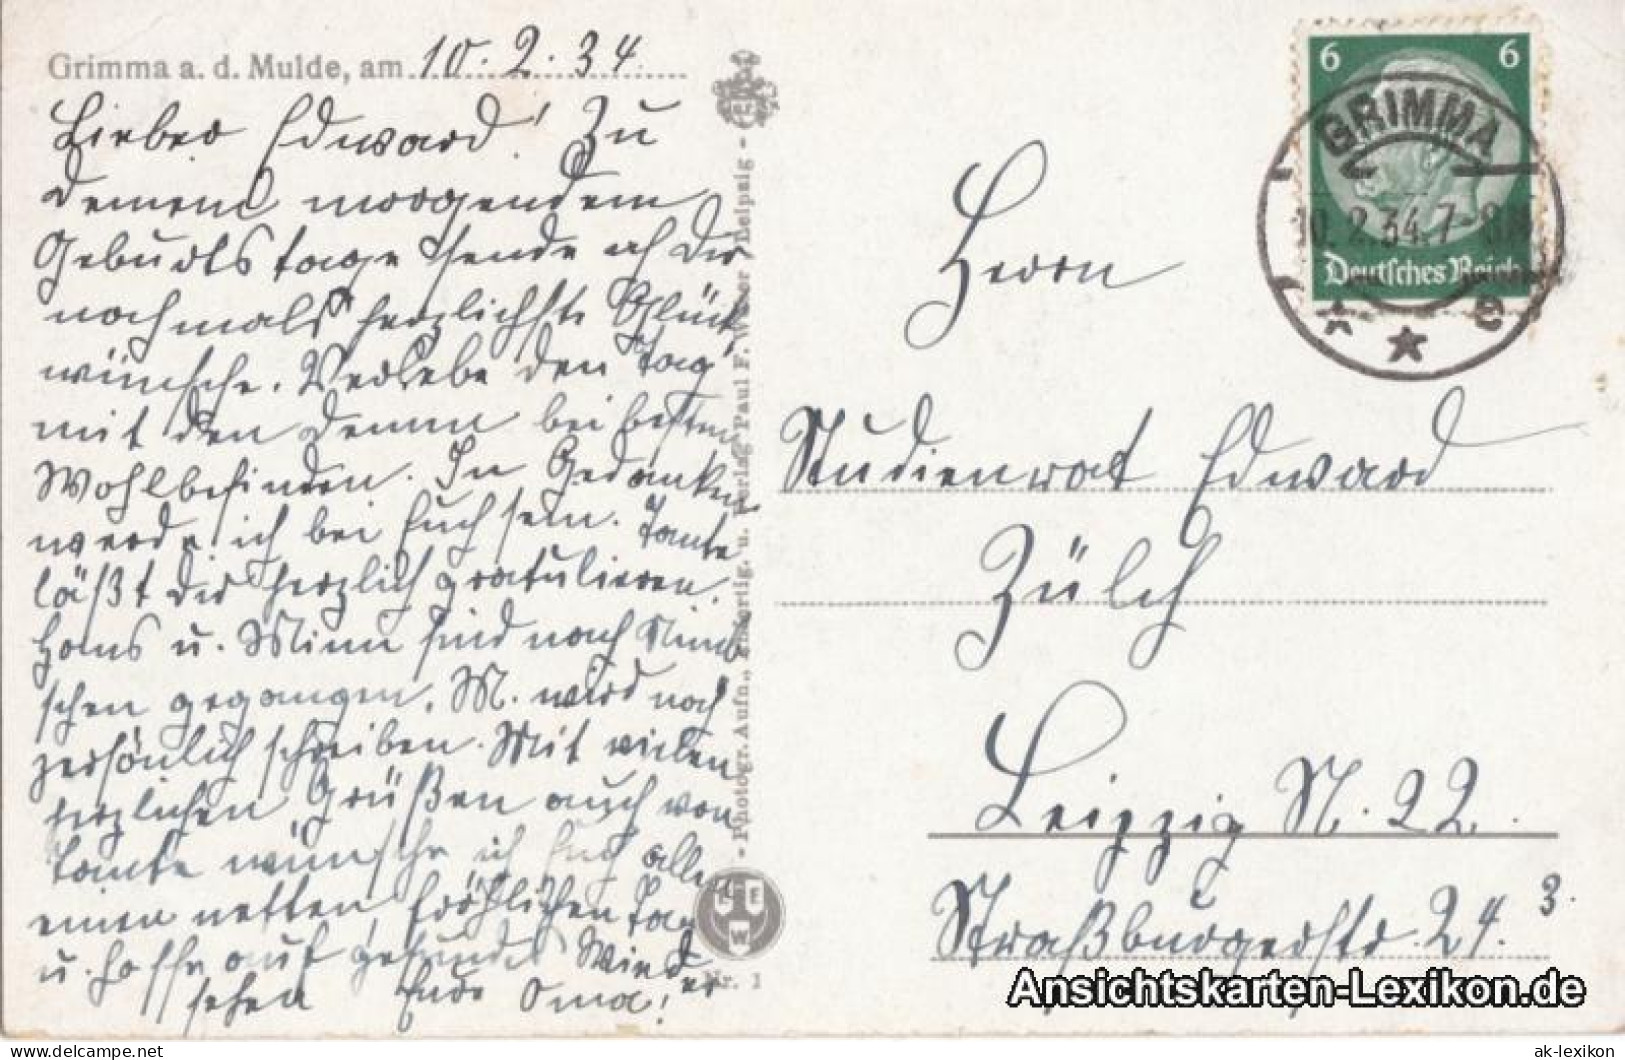 Grimma a. d. Mulde, am 10.2.34.
Lieber Edward! Zu
Deinem morgendem
Geburtstage sende ich Dir
nochmals herzlichste Glück
wünsche. Verlebe den Tag
mit den Deinen bei bestem
Wohlbefinden. In Gedanken
werde ich bei Euch sein. Tante
läßt Dir herzlich gratulieren.
Hans u. Mimi sind nach
schen gegangen. M. wird noch
persönlich schreiben. Mit vielen
herzlichen Grüßen auch von
Tante wünsche ich Euch allen
einen netten, fröhlichen Tag
u. hoffe auf gesundes Wieder
sehen Eure Oma!
Photogr. Aufn., Anfertig. u. Verlag Paul F. Weber Leipzig
E E W
Nr. 1
6 6
Deutsches Reich
GRIMMA
10.2.34.7-8
e
Herrn
Studienrat Edward
Zülch
Leipzig N. 22.
Straßburgerstr. 24. 3.
Ansichtskarten-Lexikon.de
© www.delcampe.net
ak-lexikon